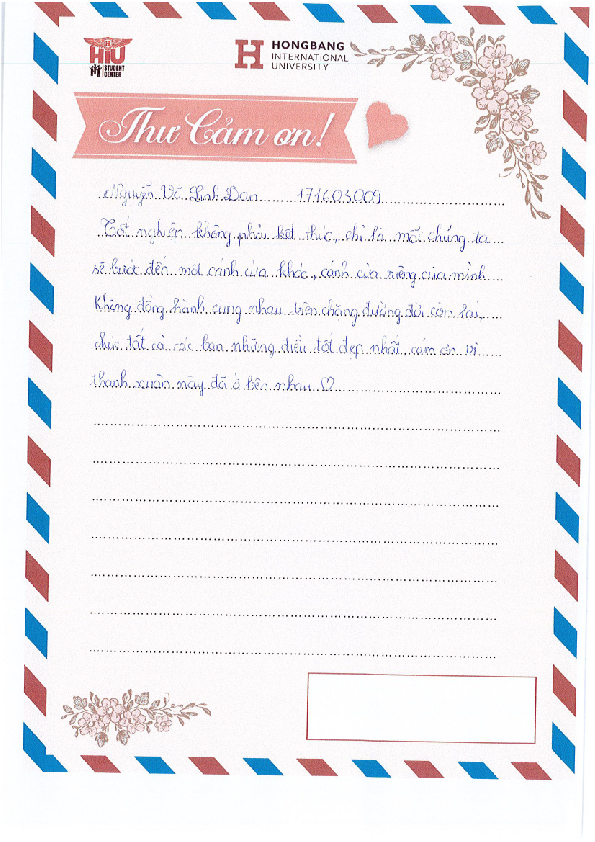 HIU
STUDENT
CENTER
HONGBANG
INTERNATIONAL
UNIVERSITY
Thư Cảm ơn!
Nguyễn Võ Linh Đan 171603009
Tốt nghiệp không phải kết thúc, chỉ là mỗi chúng ta
sẽ bước đến một cánh cửa khác, cánh cửa riêng của mình
Không đồng hành cùng nhau trên chặng đường đời còn lại
chúc tất cả các bạn những điều tốt đẹp nhất, cảm ơn vì
thanh xuân này đã ở bên nhau ♡